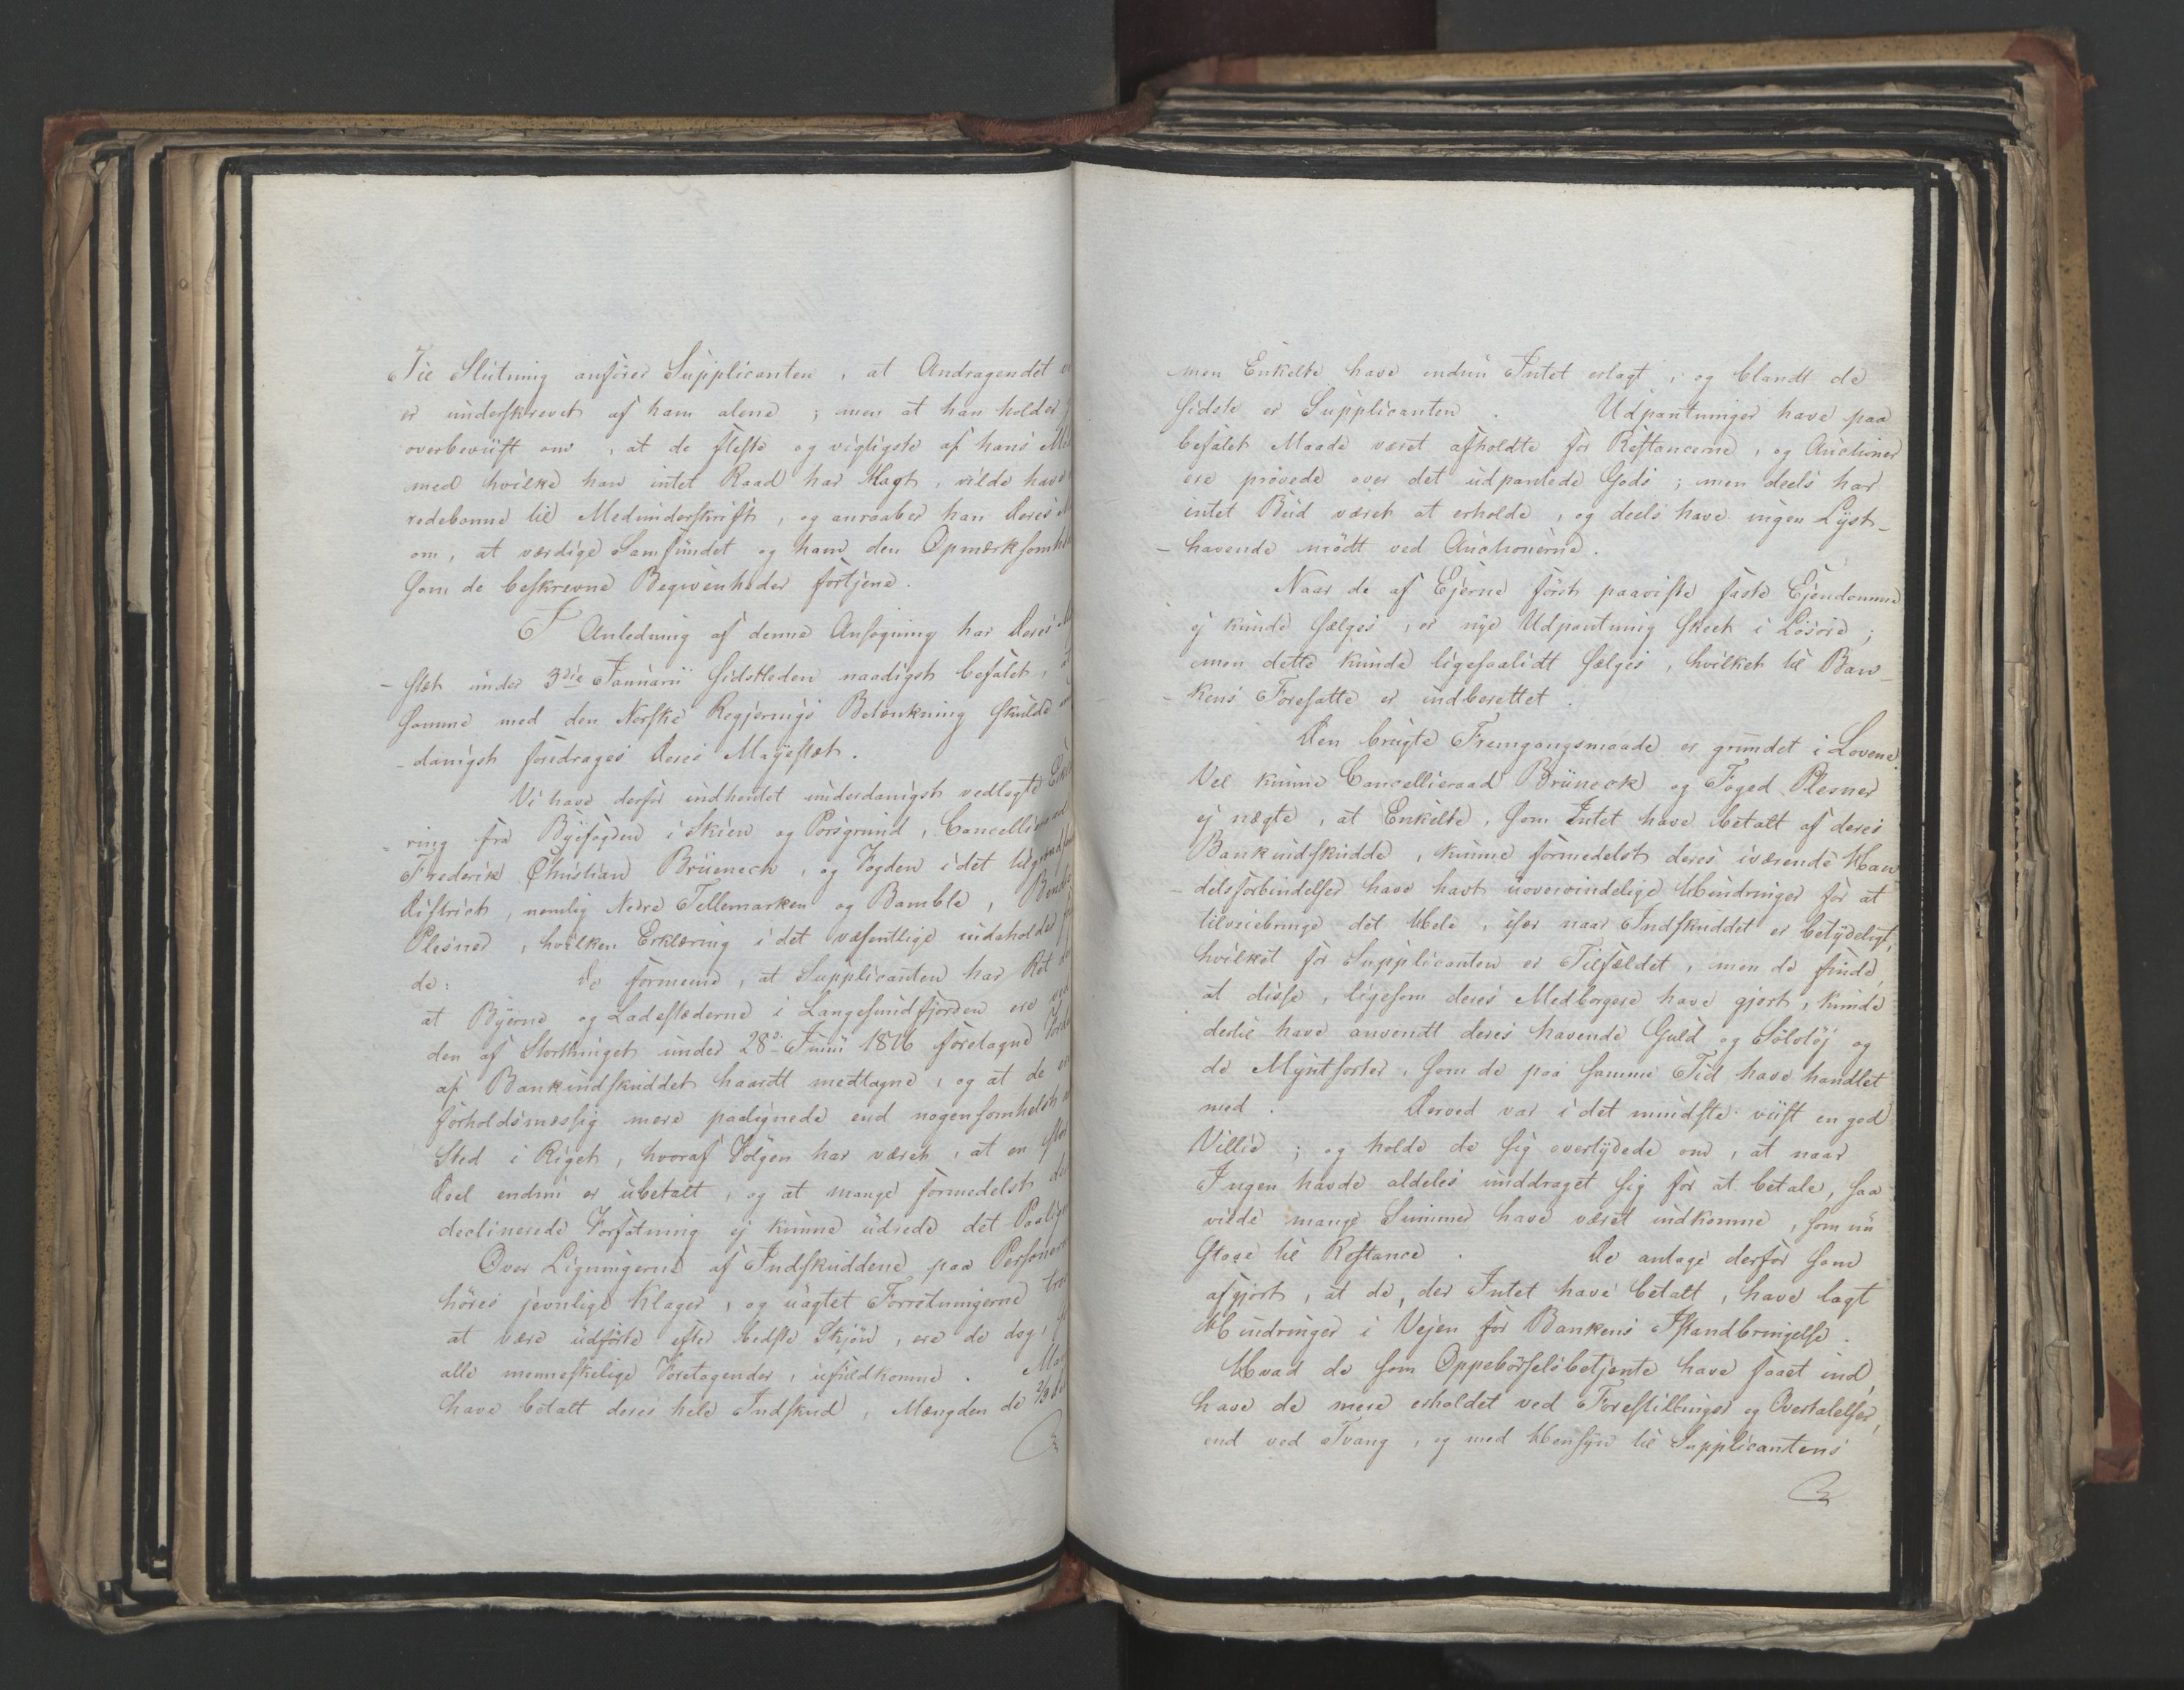 Til Slutning anfører Supplicanten, at Andragendet
er underskrevet af ham alene; men at han holder
overbeviist om, at de fleste og vigtigste af hans
med hvilke han intet Raad har Magt, vilde have
redebonne til Medunderskrift, og anraaber han Deres
om, at værdige Samfundet og ham den Opmærksomhed
som de beskrevne Begivenheder fortjene.
I Anledning af denne Ansøgning har Deres
-stæt under 3die Januarii sidstleden naadigst befalet,
samme med den Norske Regjerings Betænkning skulde
-danigst foredrages Deres Majestæt.
Vi have derfor indhentet underdanigst vedlagte Erklæ
-ring fra Byefogden i Skien og Porsgrund, Cancelliraad
Frederik Christian Brüeneck, og Fogden i det tilgrændsende
District, nemlig Nedre Tellemarken og Bamble,
Plesner, hvilken Erklæring i det væsentlige indeholder
de: De formene, at Supplicanten har Ret
at Byerne og Ladestæderne i Langesundfjorden ere ved
den af Storthinget under 28de Junii 1816 foretagne
af Bankindskuddet haardt medtagne, og at de ere
forholdsmæssig mere paalignede end nogensomhelst
Sted i Riget, hvoraf Følgen har været, at en stor
Deel endnu er ubetalt, og at mange formedelst
declinerede Forfatning ej kunne udrede det
Over Ligningerne af Indskuddene paa Personerne
høres jevnlige Klager, og uagtet Forretningerne
at være udførte efter bedste Skjøn, ere de dog,
alle menneskelige Foretagender, ufuldkomne.
have betalt deres hele Indskud, Mængden de 2/3
men Enkelte have endnu Intet erlagt, og blandt de
sidste er Supplicanten. Udpantninger have paa
befalet Maade været afholdte for Restancerne, og Auctioner
ere prøvede over det udpantede Gods; men deels har
intet Bud været at erholde, og deels have ingen Lyst-
-havende mødt ved Auctionerne.
Naar de af Ejerne først paaviste faste Ejendomme
ej kunde sælges, er nye Udpantning skeet i Løsøre;
men dette kunde ligesaalidt sælges, hvilket til Ban-
-kens Foresatte er indberettet.
Den brugte Fremgangsmaade er grundet i Lovene.
Vel kunne Cancellieraad Brüneck og Foged Plesner
ej nægte, at Enkelte, som Intet have betalt af deres
Bankindskudde, kunne formedelst deres iværende Han
-delsforbindelser have havt uovervindelige Hindringer for at
tilveiebringe det Hele, især naar Indskuddet er betydeligt,
hvilket for Supplicanten er Tilfældet, men de finde,
at disse, ligesom deres Medborgere have gjort, kunde
dertil have anvendt deres havende Guld og Sølvtøj og
de Myntsorter, som de paa samme Tid have handlet
med. Derved var i det mindste viist en god
Villie; og holde de sig overtydede om, at naar
Ingen havde aldeles unddraget sig for at betale, saa
vilde mange Summer have været indkomne, som nu
staae til Restance. De antage derfor som
afgjort, at de, der Intet have betalt, have lagt
Hindringer i Vejen for Bankens Istandbringelse.
Hvad de som Oppebørselsbetjente have faaet ind,
have de mere erholdet ved Forestillinger og Overtalelser,
end ved Tvang, og med Hensyn til Supplicantens